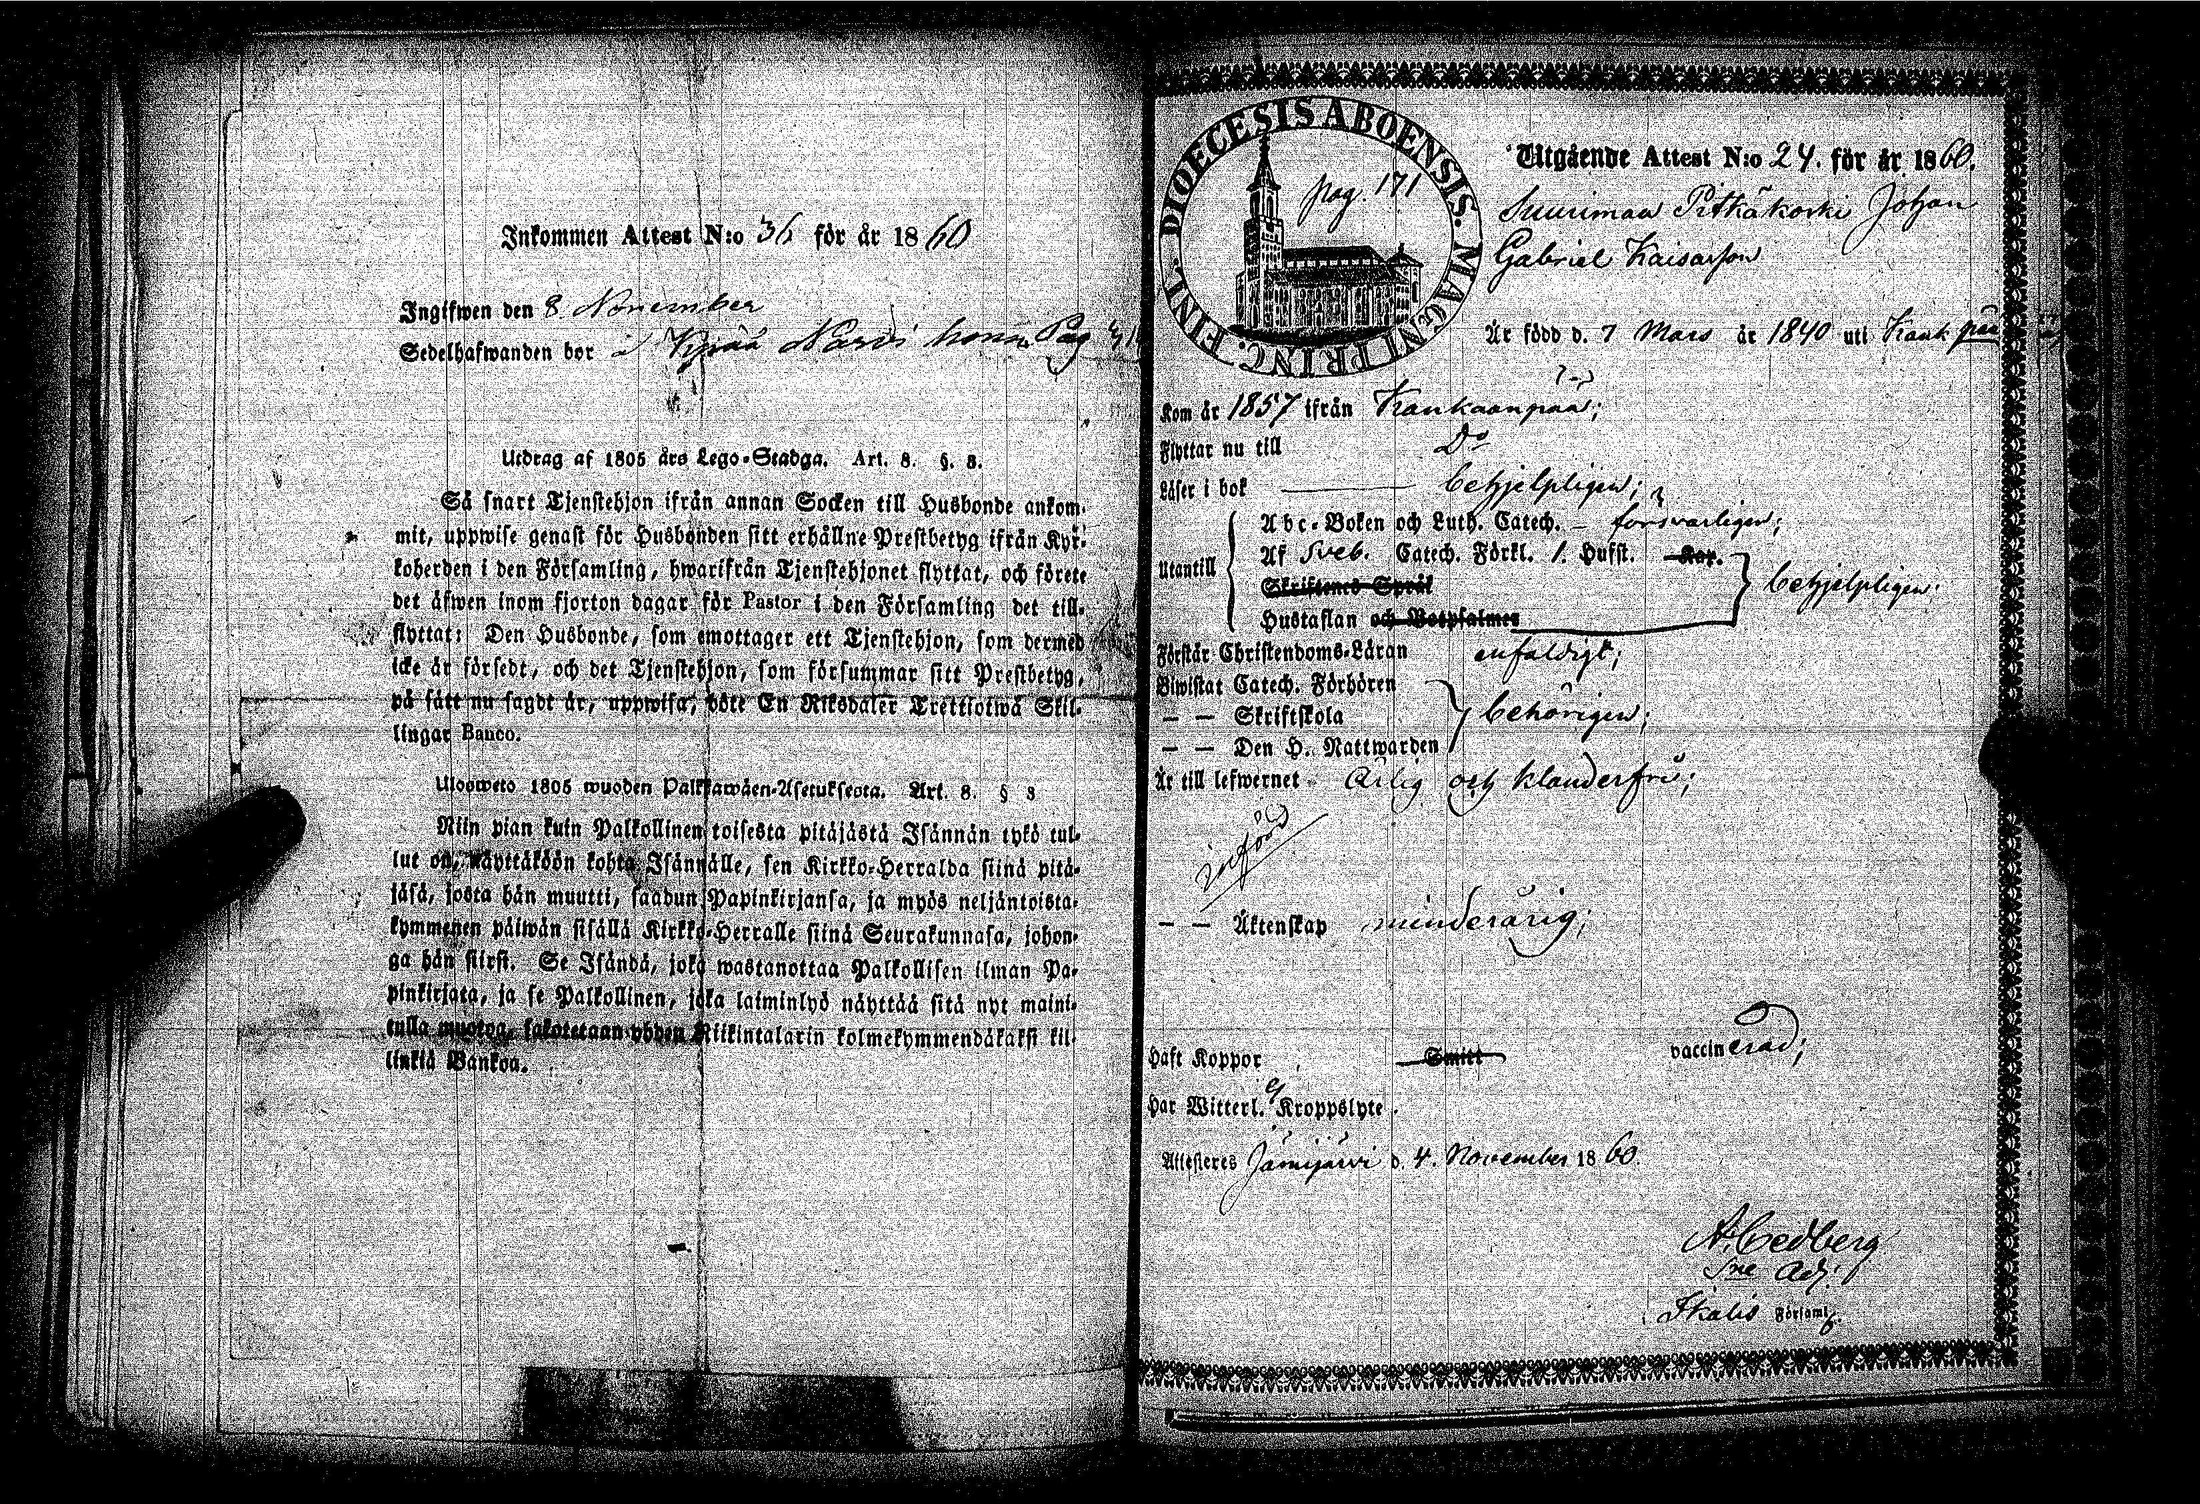 Inkommen Attest N:o 36 för år 1860
Ingifwen den 8. November
Sedelhafwanden bor i Kyrää Narvi Pag
Utdrag af 1805 års Lego-Stadga. Art. 8. §. 8.
Så snart Tjenstehjon ifrån annan Socken till Husbonde ankom-
mit, uppwise genast för Husbonden sitt erhållne Prestbetyg ifrån Kyr-
koherden i den Församling, hwarifrån Tjenstehjonet flyttat, och förete
det äfwen inom fjorton dagar för Pastor i den Församling det till-
flyttat: Den Husbonde, som emottager ett Tjenstehjon, som dermed
icke är försedt, och det Tjenstehjon, som försummar sitt Prestbetyg,
på sätt nu sagdt är, uppwisa, böte En Riksdaler Trettiotwå Skil-
lingar Banco.
Ulosweto 1805 wuoden Palkkawäen-Asetuksesta. Art. 8. § 8
Niin pian kuin Palkollinen toisesta pitäjästä Isännän tykö tul-
lut on, näyttäköön kohta Isännälle, sen Kirkko-Herralda siinä pitä-
jäsä, josta hän muutti, saadun Papinkirjansa, ja myös neljäntoista-
kymmenen päiwän sisällä Kirkko-Herralle siinä Seurakunnasa, johon-
ga hän siirsi. Se Isändä, joka wastanottaa Palkollisen ilman Pa-
pinkirjata, ja se Palkollinen, joka laiminlyö näyttää sitä nyt maini-
tulla muotoa, sakotetaan yhden Riikintalarin kolmekymmendäkaksi kil-
linkiä Bankoa.
DIOECESIS ABOENSIS. MAGNI PRINC. FINL.
pag. 171
Utgående Attest N:o 24. för år 1860.
Suurimaa Pitkäkoski Johan
Gabriel Kaisarson
Är född d. 7 Mars år 1840 uti Kankpää
Kom år 1857 ifrån Kankaanpää;
Flyttar nu till Do
Läser i bok behjelpligen;
Utantill
Abc-Boken och Luth. Catech. - försvarligen;
Af Sveb. Catech. Förkl. 1. Hufst. Kap.
Skriftenes Språk
Hustaflan och Botpsalmer
behjelpligen.
Förstår Christendoms-Läran enfaldigt;
Biwistat Catech. Förhören
— — Skriftskola
— — Den H. Nattwarden
behörigen;
Är till lefwernet Ärlig och klanderfri;
införd
— — Äktenskap minderårig;
Haft Koppor Smitt vaccinerad;
Har Witterl. ej Kroppslyte.
Attesteres Jämijärvi d. 4. November 1860.
A. Cedberg
Sne Adj.
Ikalis Församl.